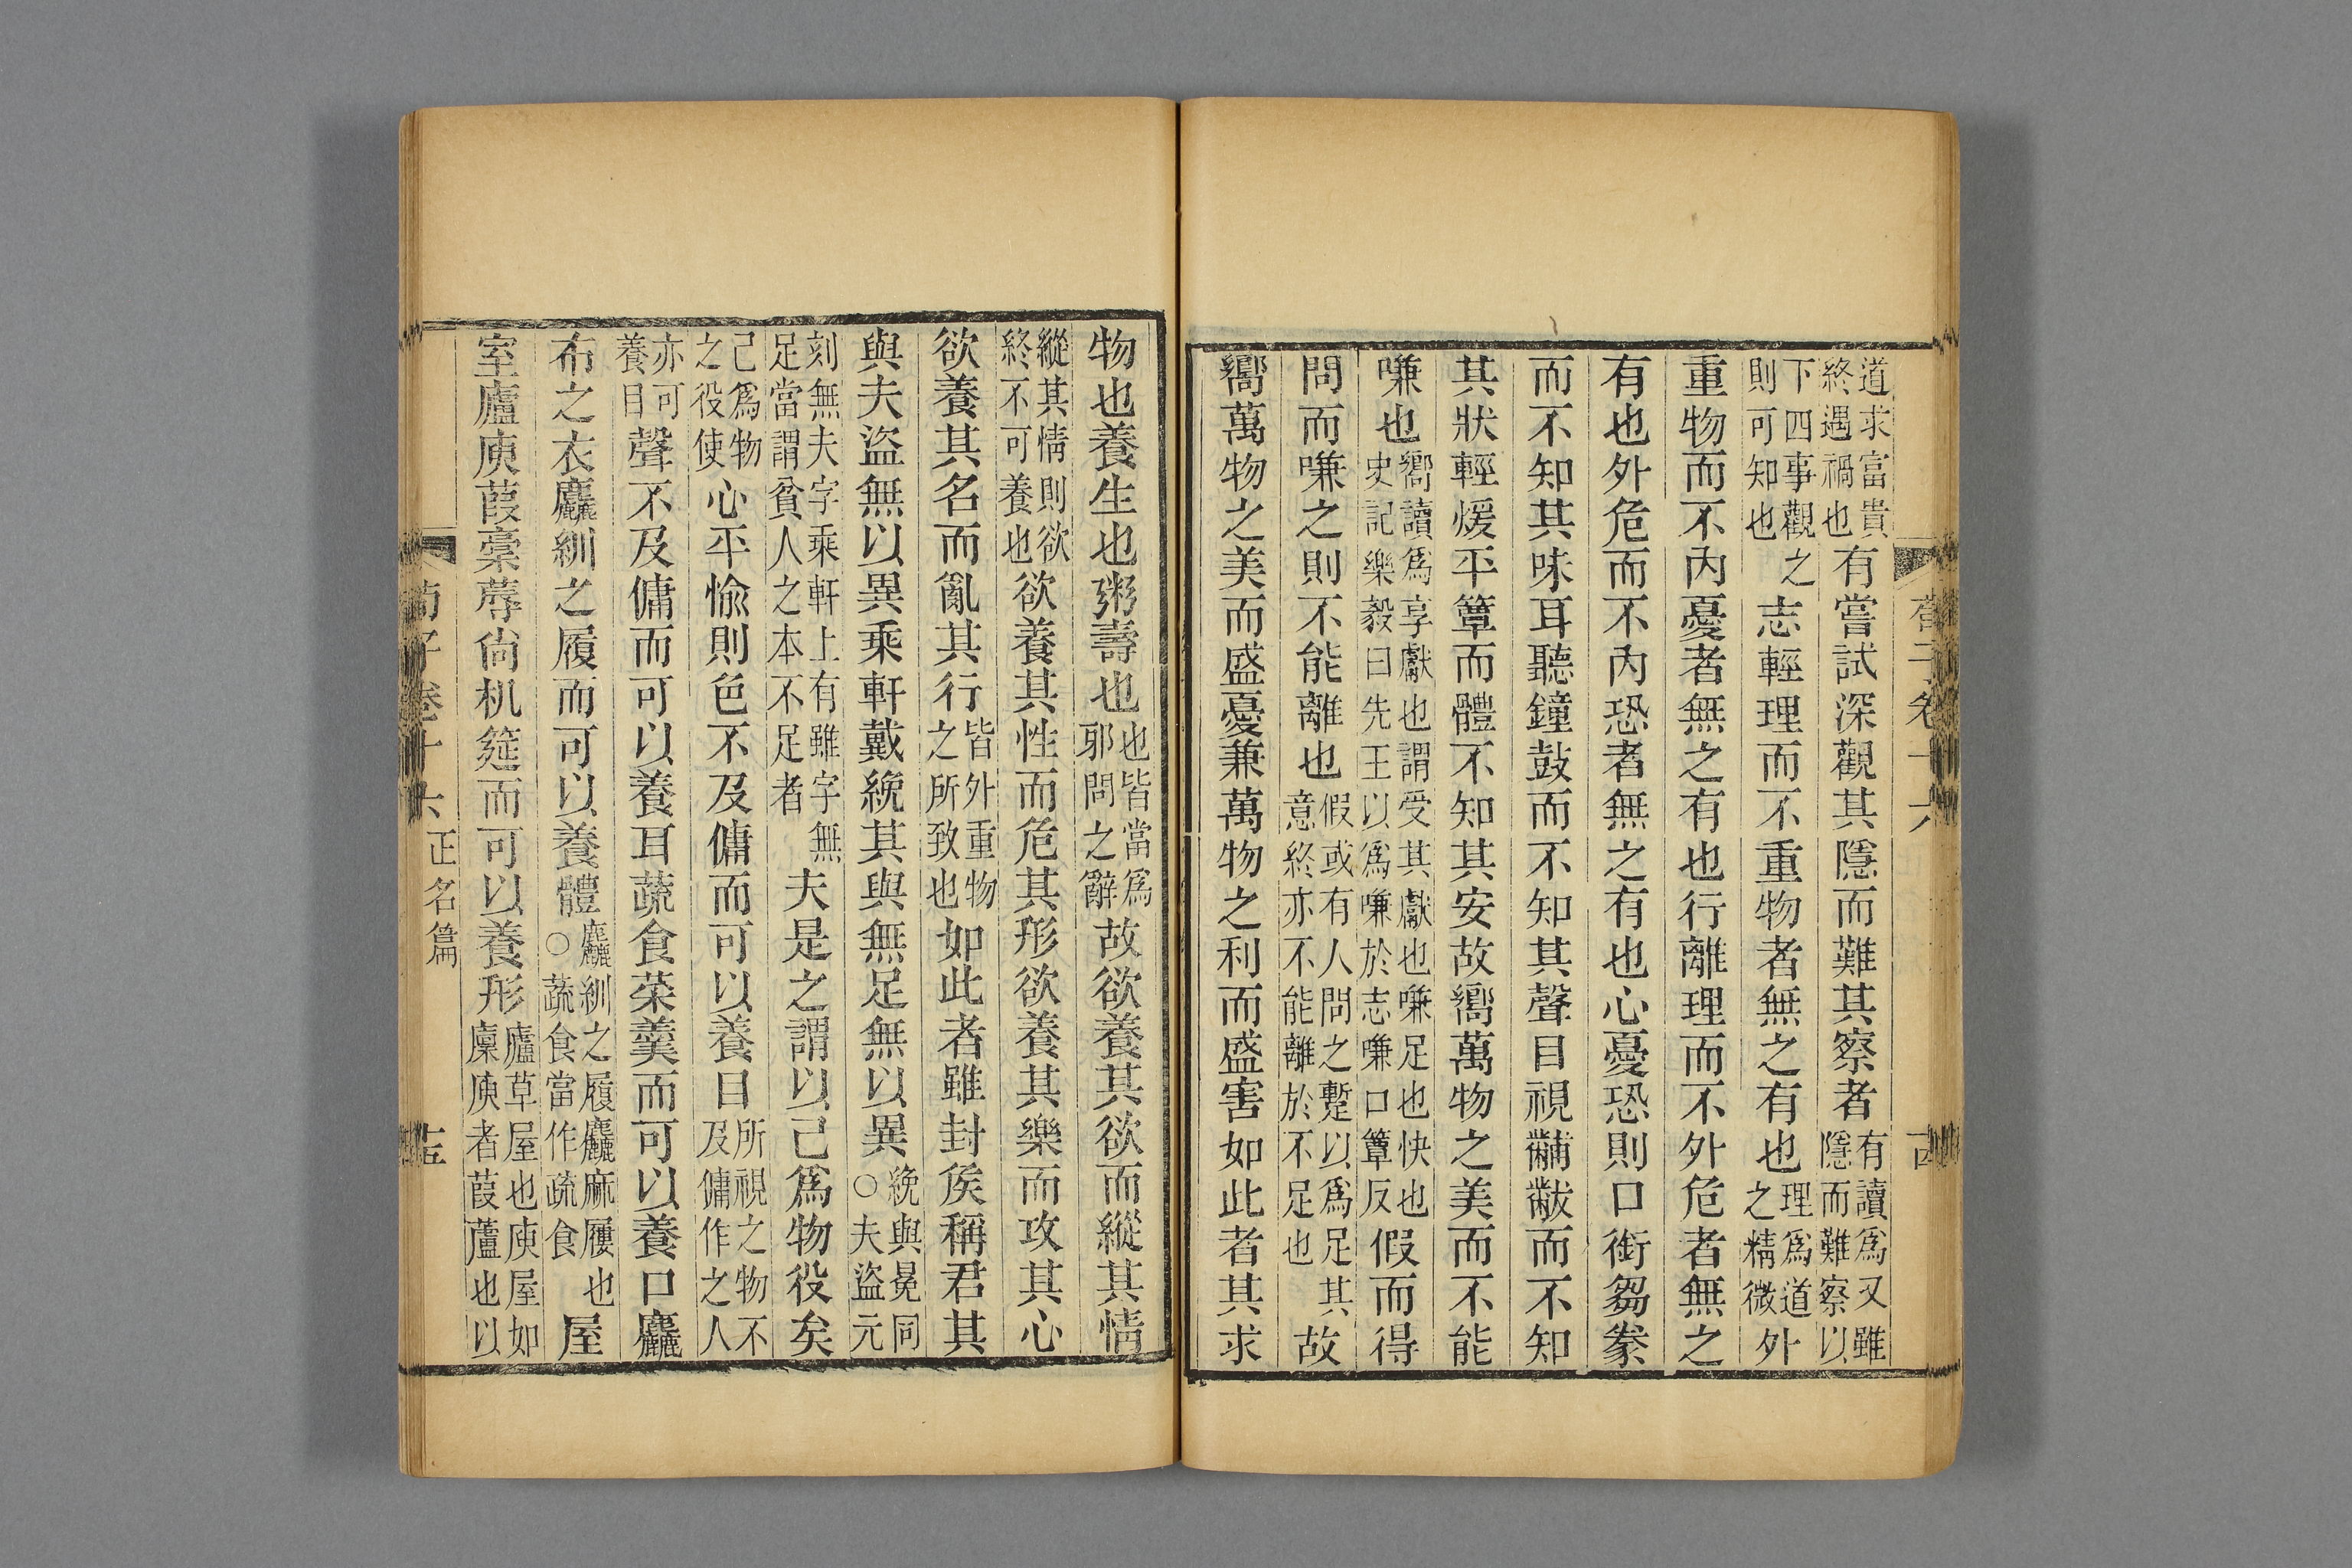 道求富貴終遇禍也有嘗試深觀其隱而難其察者有讀爲又雖隱而難察以
下四事觀之則可知也志輕理而不重物者無之有也理爲道之精微外
重物而不內憂者無之有也行離理而不外危者無之
有也外危而不內恐者無之有也心憂恐則口銜芻豢
而不知其味耳聽鐘鼓而不知其聲目視黼黻而不知
其狀輕煖平簟而體不知其安故嚮萬物之美而不能
嗛也嚮讀爲享獻也謂受其獻也嗛足也快也史記樂毅曰先王以爲嗛於志嗛口簟反假而得
問而嗛之則不能離也假或有人問之蹔以爲足其意終亦不能離於不足也故
嚮萬物之美而盛憂兼萬物之利而盛害如此者其求
物也養生也粥壽也也皆當爲邪問之辭故欲養其欲而縱其情
縱其情則欲終不可養也欲養其性而危其形欲養其樂而攻其心
欲養其名而亂其行皆外重物之所致也如此者雖封侯稱君其
與夫盜無以異乘軒戴絻其與無足無以異絻與冕同○夫盜元
刻無夫字乘軒上有雖字無足當謂貧人之本不足者夫是之謂以己爲物役矣
己爲物之役使心平愉則色不及傭而可以養目所視之物不及傭作之人
亦可養目聲不及傭而可以養耳蔬食菜羹而可以養口麤
布之衣麤紃之履而可以養體麤紃之履麤麻屨也○蔬食當作疏食屋
室廬庾葭稾蓐尙机筵而可以養形廬草屋也庾屋如廩庾者葭蘆也以
荀子卷十六
正名篇